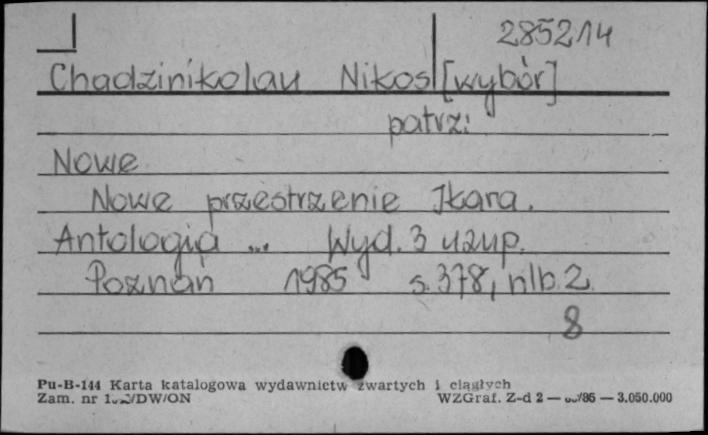 285214
Chadzinikolau Nikos [wybór]
patrz:
Nowe
Nowe przestrzenie Ikara.
Antologia ... Wyd. 3 uzup.
Poznań 1985 s. 378, nlb. 2.
8
Pu-B-144 Karta katalogowa wydawnictw zwartych i ciągłych
Zam. nr DW/ON WZGraf. Z-d 2 — /86 — 3.050.000